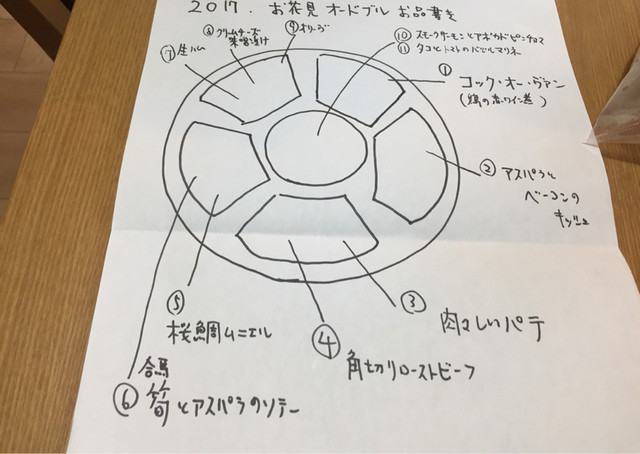 2017. お花見 オードブル お品書き
⑩ スモークサーモンとアボカドピンチョス
⑪ タコとトマトのバジルマリネ
⑨ オリーブ
⑧ クリームチーズ
味噌漬け
⑦ 生ハム
① コック・オー・ヴァン
(鶏の赤ワイン煮)
② アスパラと
ベーコンの
キッシュ
③ 肉々しいパテ
④ 角切りローストビーフ
⑤ 桜鯛ムニエル
合馬
⑥ 筍とアスパラのソテー